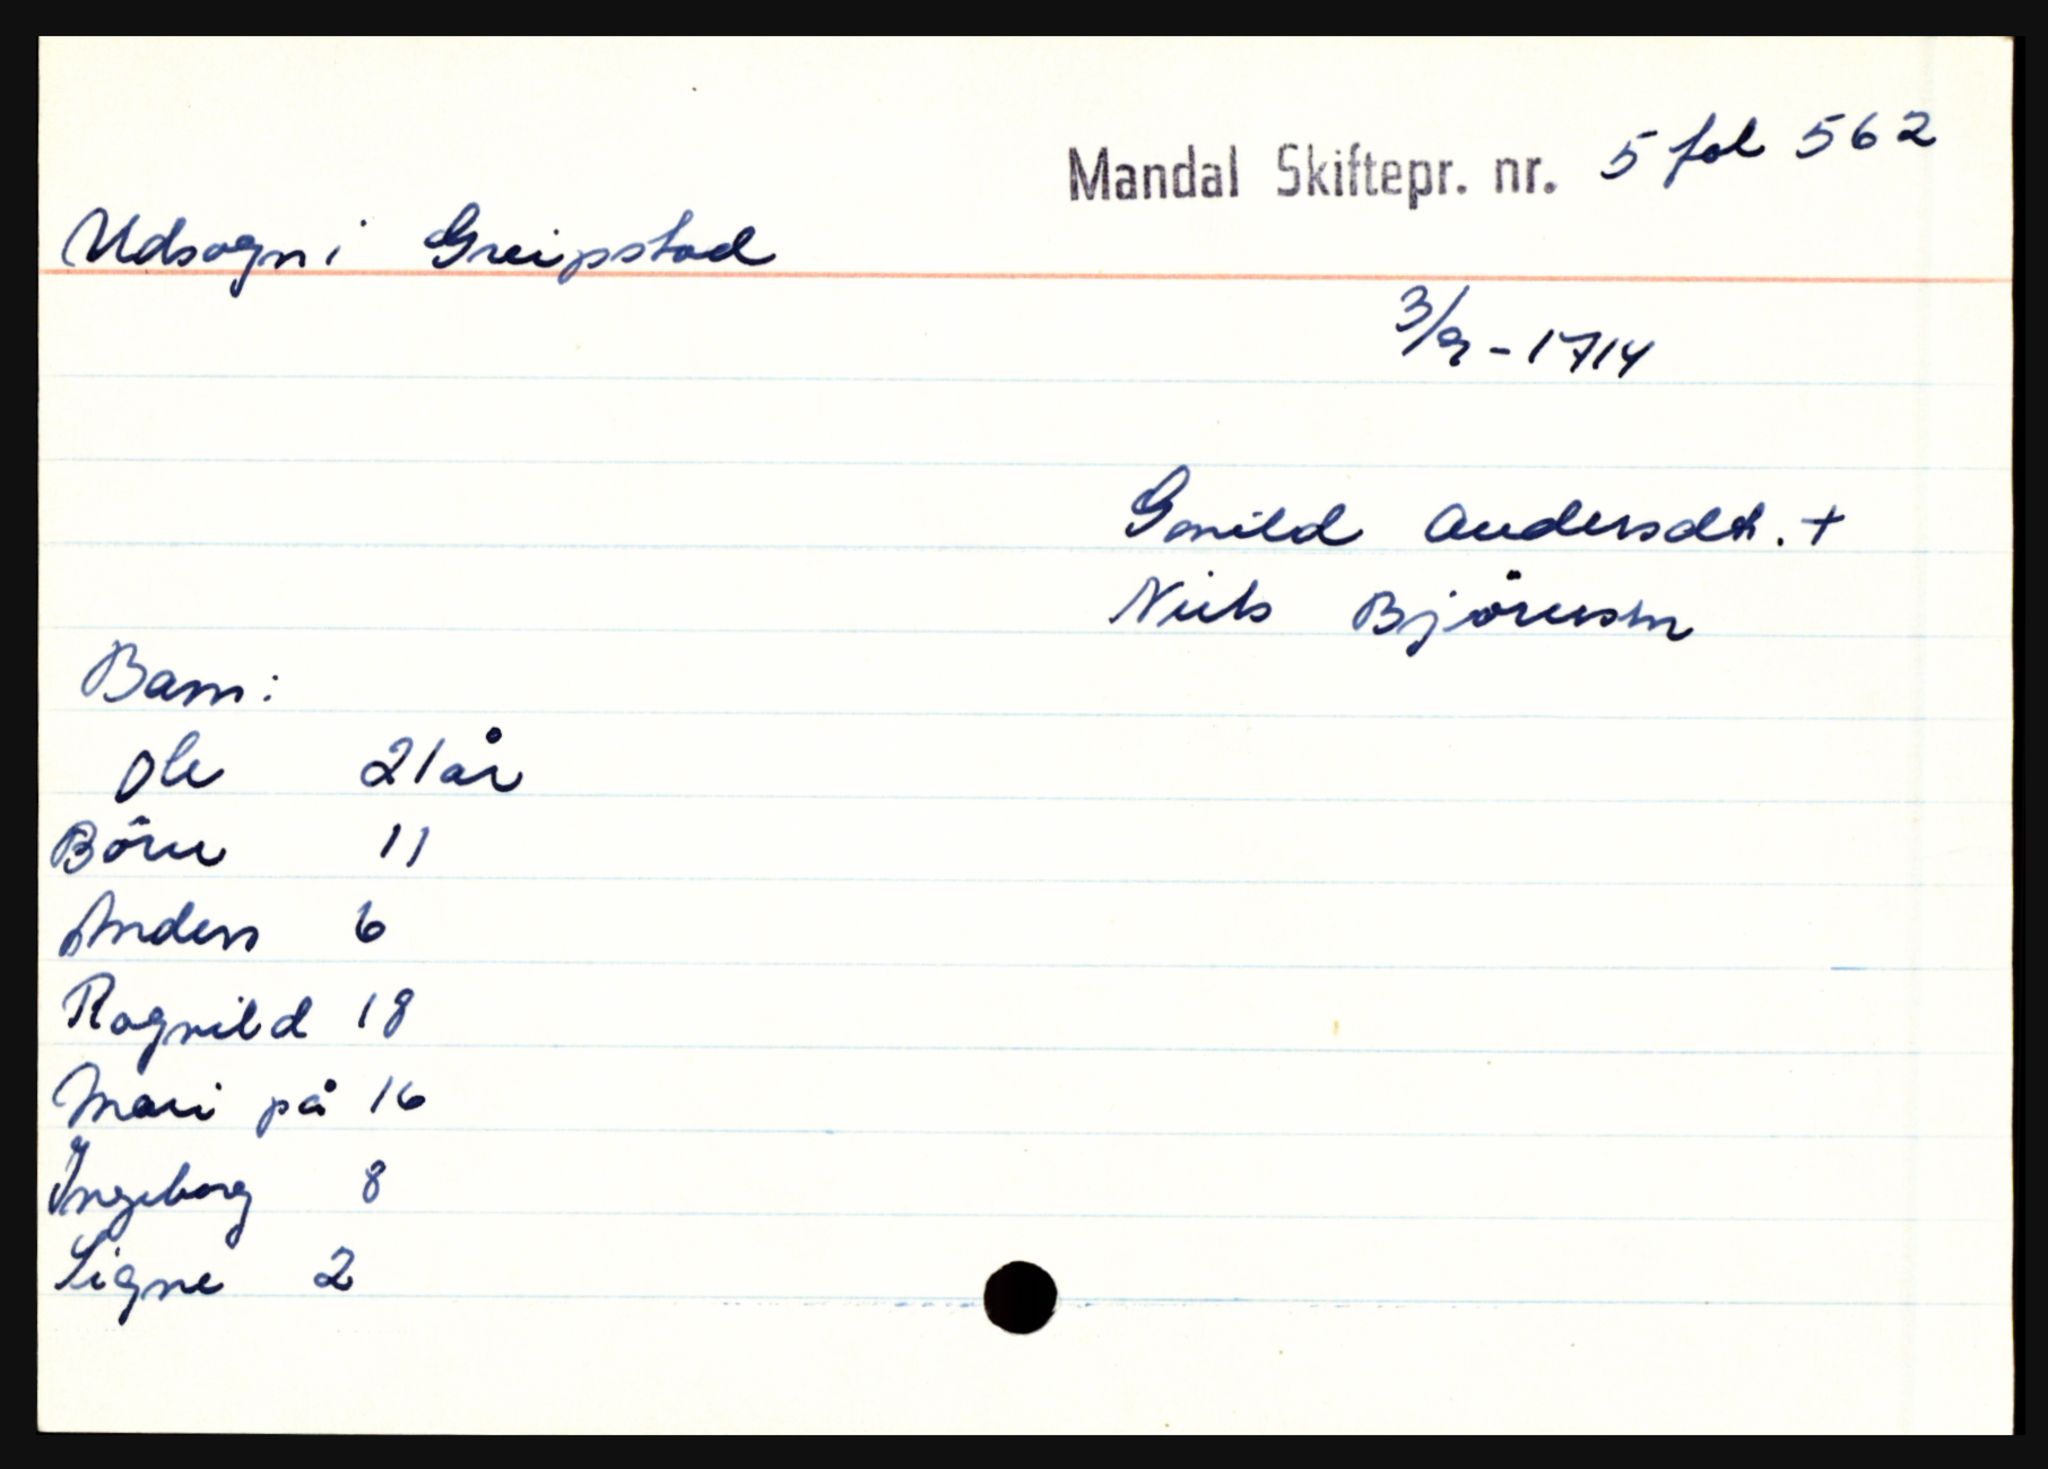 Mandal Skiftepr. nr. 5 fol 562
Udsogn i Greipstad
3/9-1714
Gonild Andersdtr. +
Niels Björnsen
Barn:
Ole 21 år
Börn 11
Anders 6
Ragnild 18
Mari på 16
Ingeborg 8
Signe 2